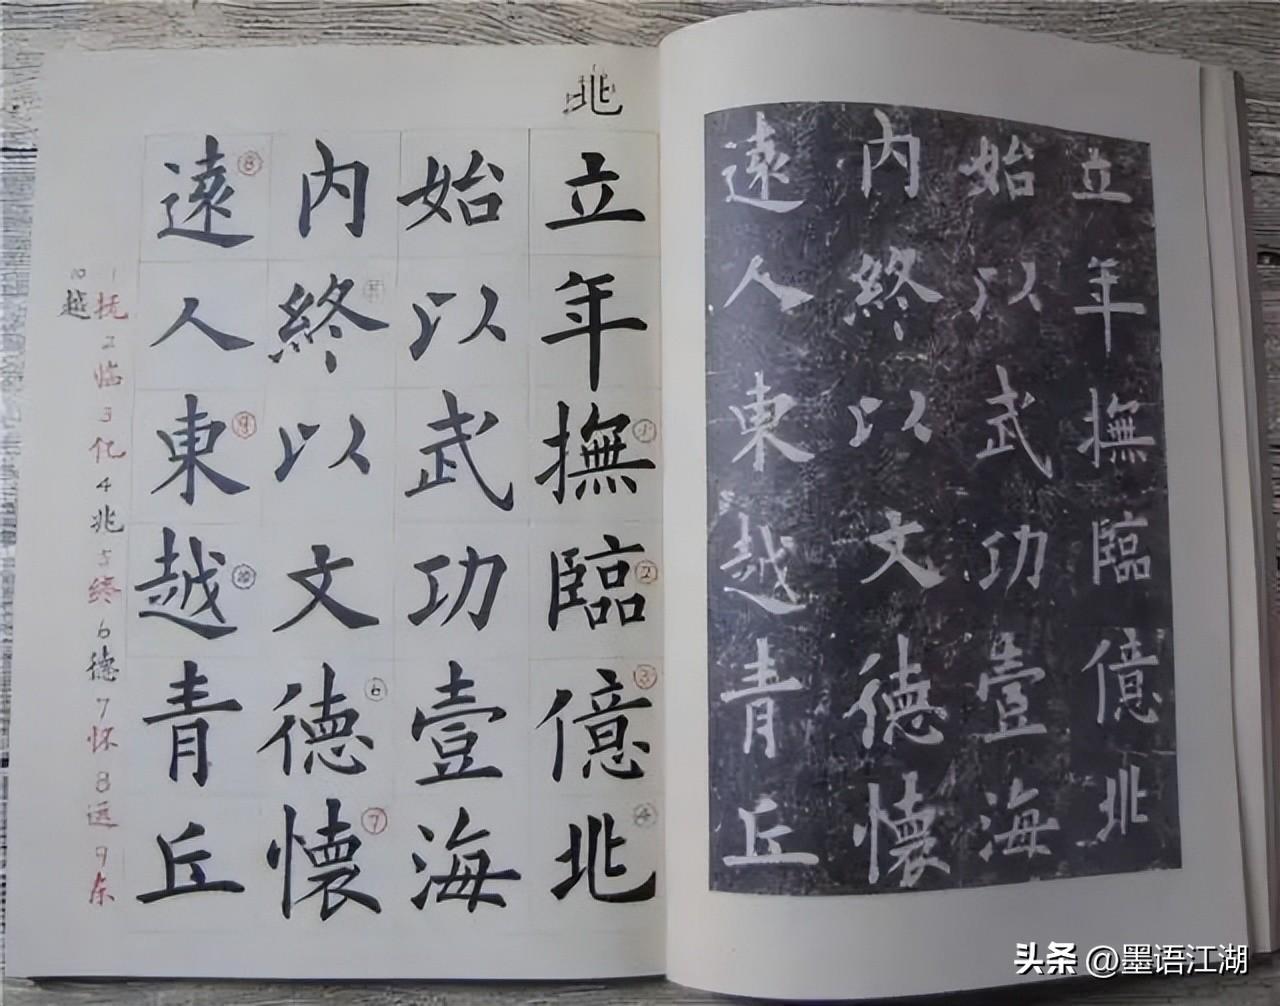 兆
立年撫①臨②億③兆④
始以武功壹海
内終⑤以文德⑥懷⑦
遠⑧人東⑨越⑩青丘
1抚2临3亿4兆5终6德7怀8远9东
10越
立年撫臨億兆
始以武功壹海
内終以文德懷
遠人東越青丘
头条 @墨语江湖